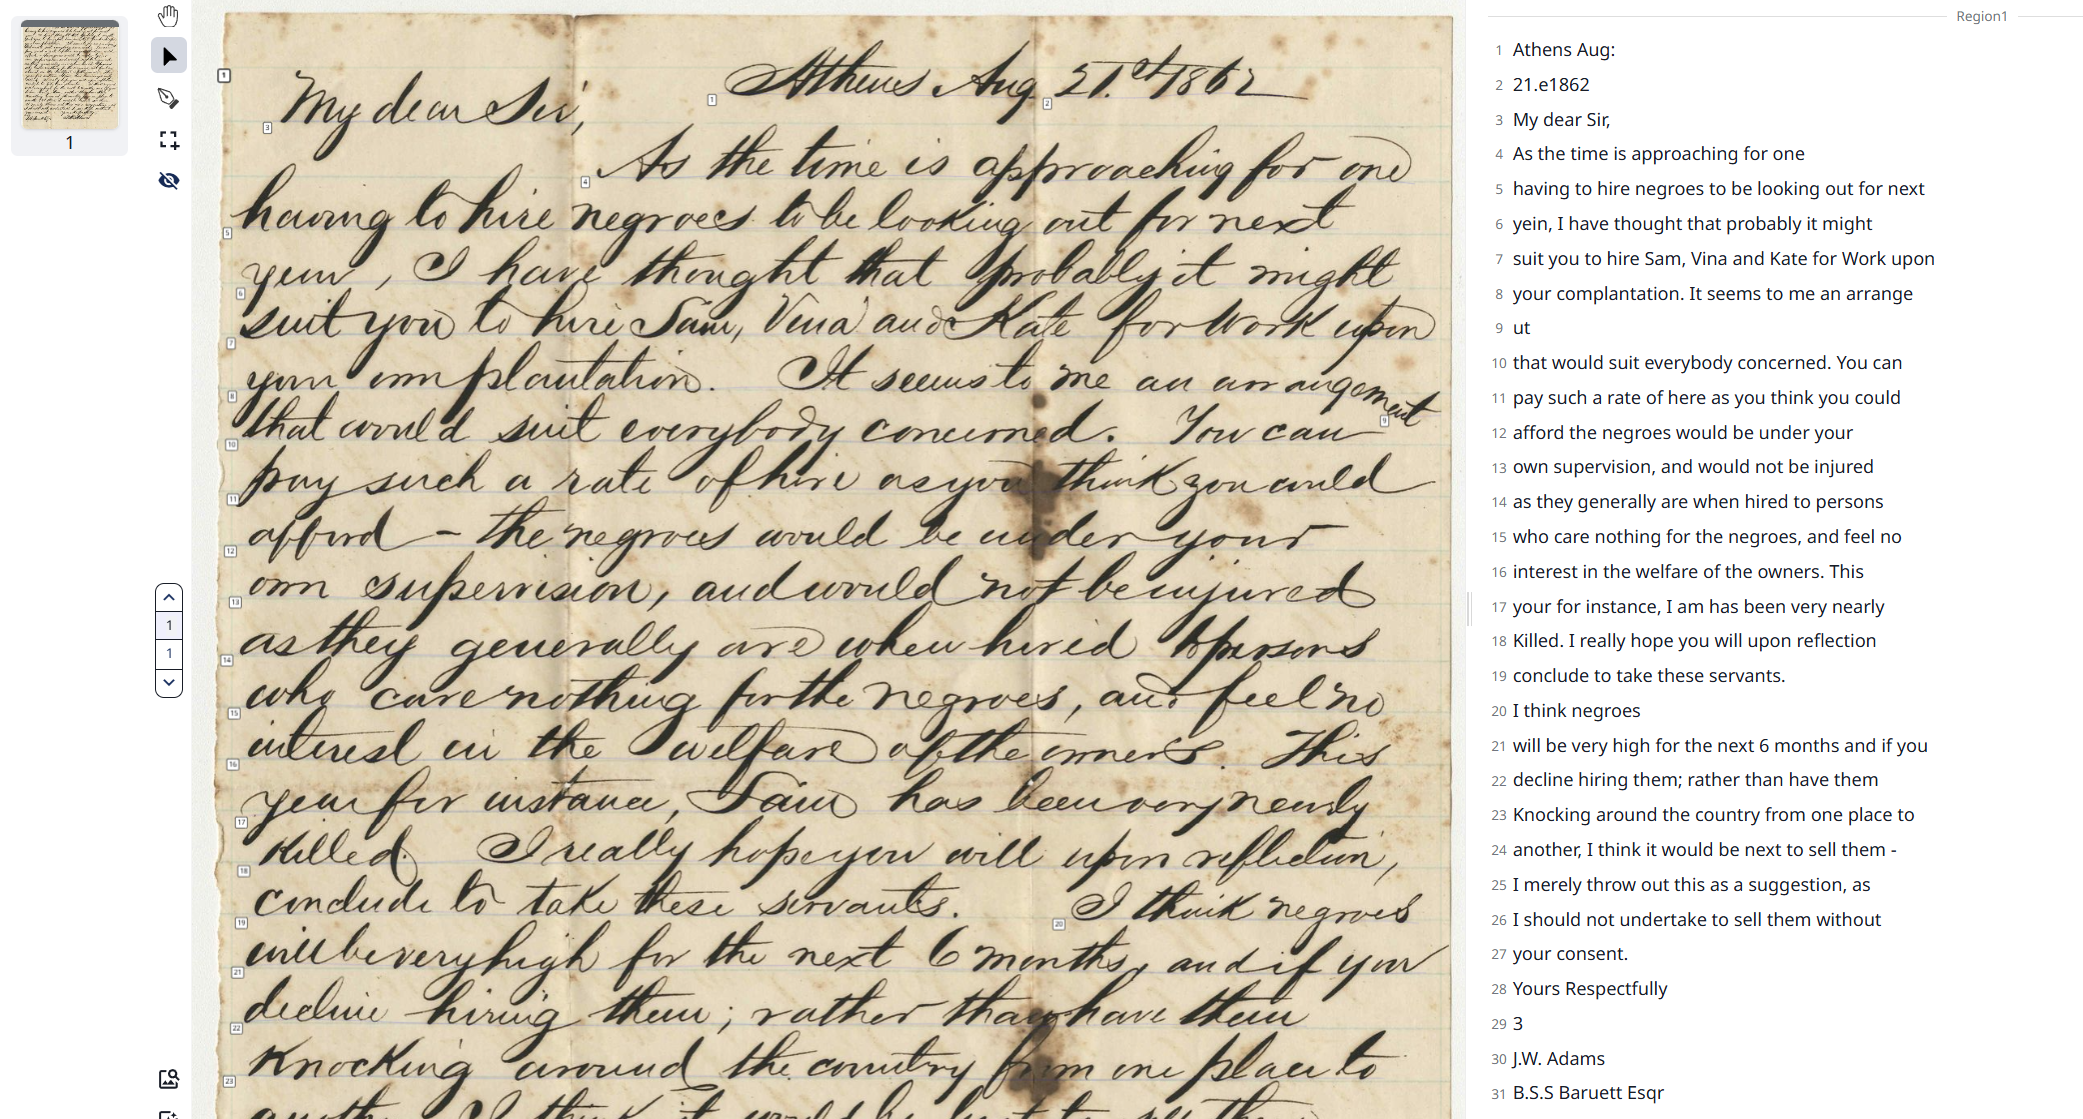 1
Athens Aug 21.st 1862
My dear Sir,
As the time is approaching for one
having to hire negroes to be looking out for next
year, I have thought that probably it might
suit you to hire Sam, Vina and Kate for work upon
your own plantation. It seems to me an arrangement
that would suit everybody concerned. You can
pay such a rate of hire as you think you could
afford - the negroes would be under your
own supervision, and would not be injured
as they generally are when hired to persons
who care nothing for the negroes, and feel no
interest in the welfare of the owners. This
year for instance, Sam has been very nearly
killed. I really hope you will upon reflection,
conclude to take these servants. I think negroes
will be very high for the next 6 months, and if you
decline hiring them; rather than have them
Knocking around the country from one place to
1
1
Region1
1 Athens Aug:
2 21.e1862
3 My dear Sir,
4 As the time is approaching for one
5 having to hire negroes to be looking out for next
6 yein, I have thought that probably it might
7 suit you to hire Sam, Vina and Kate for Work upon
8 your complantation. It seems to me an arrange
9 ut
10 that would suit everybody concerned. You can
11 pay such a rate of here as you think you could
12 afford the negroes would be under your
13 own supervision, and would not be injured
14 as they generally are when hired to persons
15 who care nothing for the negroes, and feel no
16 interest in the welfare of the owners. This
17 your for instance, I am has been very nearly
18 Killed. I really hope you will upon reflection
19 conclude to take these servants.
20 I think negroes
21 will be very high for the next 6 months and if you
22 decline hiring them; rather than have them
23 Knocking around the country from one place to
24 another, I think it would be next to sell them -
25 I merely throw out this as a suggestion, as
26 I should not undertake to sell them without
27 your consent.
28 Yours Respectfully
29 3
30 J.W. Adams
31 B.S.S Baruett Esqr